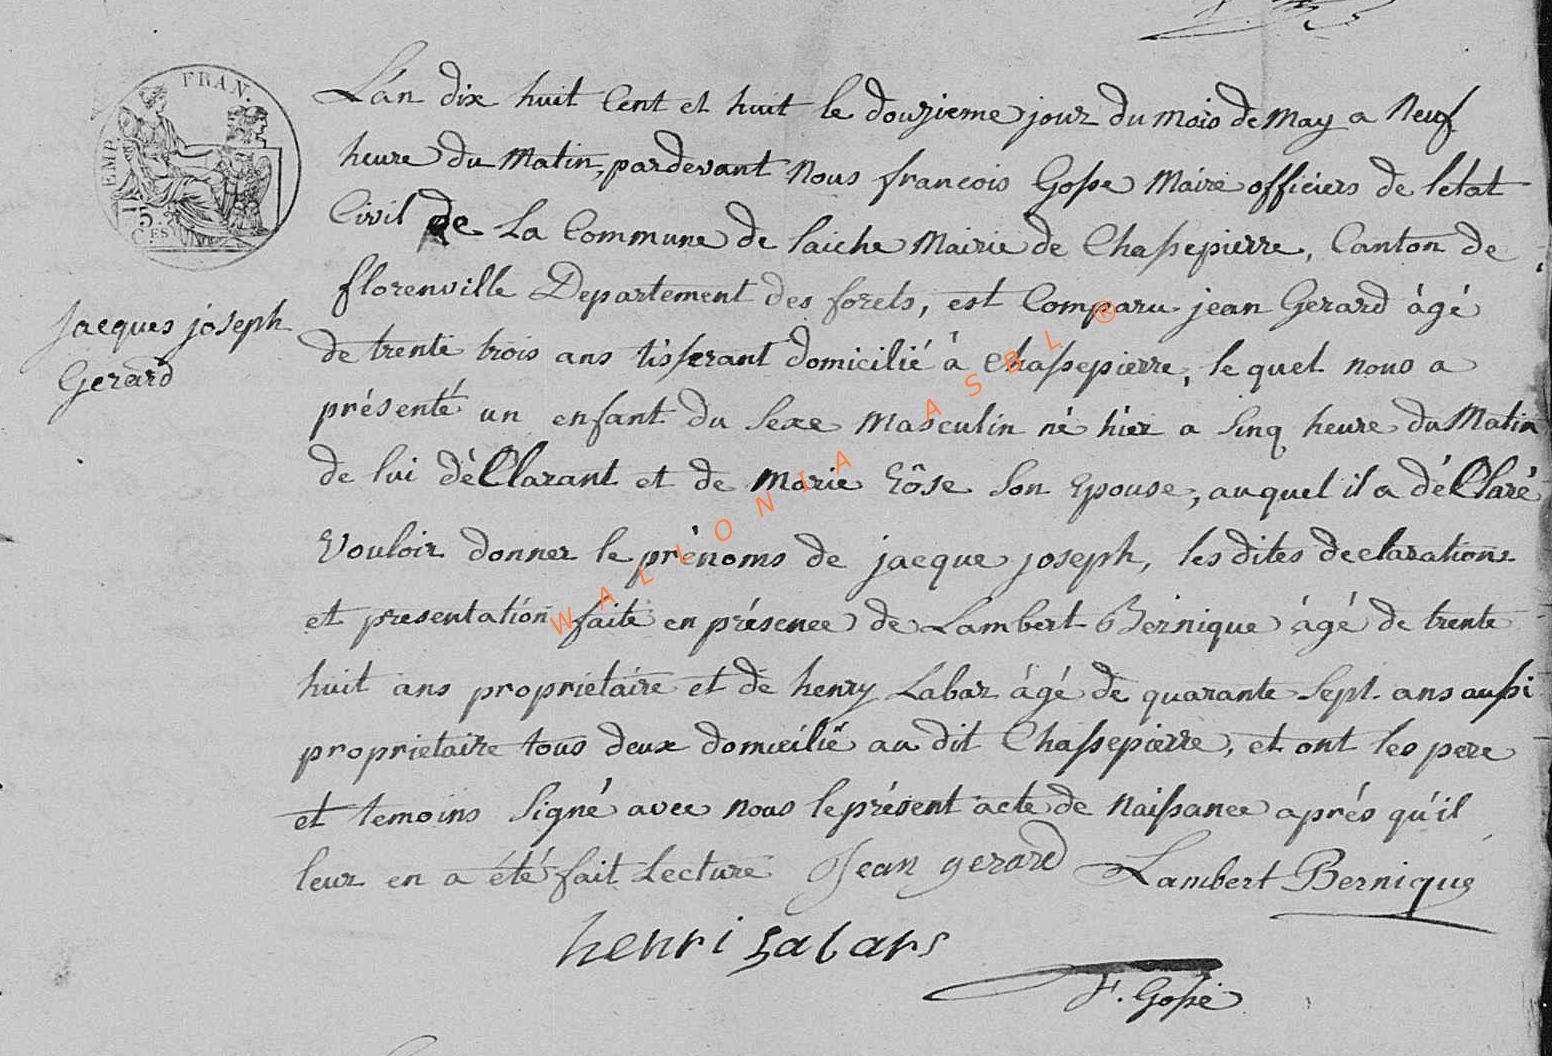 EMP. FRAN.
L'an dix huit Cent et huit le douzieme jour du mois de May a Neuf
heure du Matin, pardevant Nous francois Gosse Maire officiers de letat
Civil de La Commune de laiche Mairie de Chassepierre, Canton de
florenville Departement des forets, est Comparu jean Gerard âgé
Jacques joseph
Gerard
de trente trois ans tisserant domicilié à Chassepierre, lequel nous a
présenté un enfant du Sexe Masculin né hier a Sinq heure du Matin
de lui déClarant et de Marie Rôse Son Epouse, auquel il a déClaré
Vouloir donner le prénoms de jacque joseph, les dites declarations
et presentation faite en présence de Lambert Bernique âgé de trente
huit ans proprietaire et de henry Labar âgé de quarante Sept ans aussi
proprietaire tous deux domicilié au dit Chassepierre, et ont les pere
et temoins Signé avec nous le présent acte de Naissance aprés qu'il
leur en a été fait Lecture Jean gerard Lambert Bernique
henri Labars
F. Gosse
WALLONIA ASBL ®